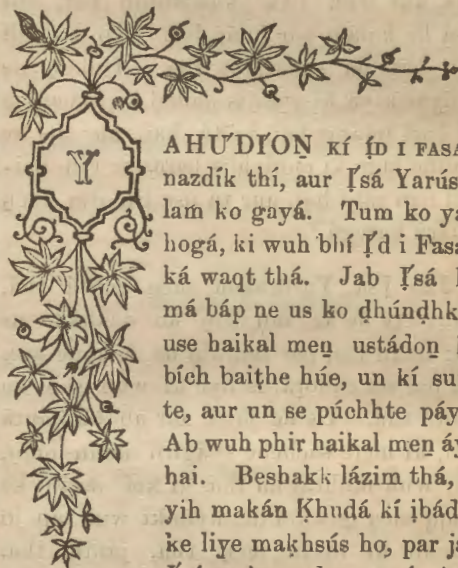 YAHÚDÍOṈ KÍ ÍD I FASA
nazdík thí, aur Ísá Yarús
lam ko gayá. Tum ko ya
hogá, ki wuh bhí Íd i Fasa
ká waqt thá. Jab Ísá k
má báp ne us ko ḍhúndhk
use haikal meṉ ustádoṉ k
bích baiṭhe húe, un kí su
te, aur un se púchhte páy
Ab wuh phir haikal meṉ áy
hai. Beshakk lázim thá,
yih makán Ḳhudá kí ibád
ke liye maḳhsús ho, par ja